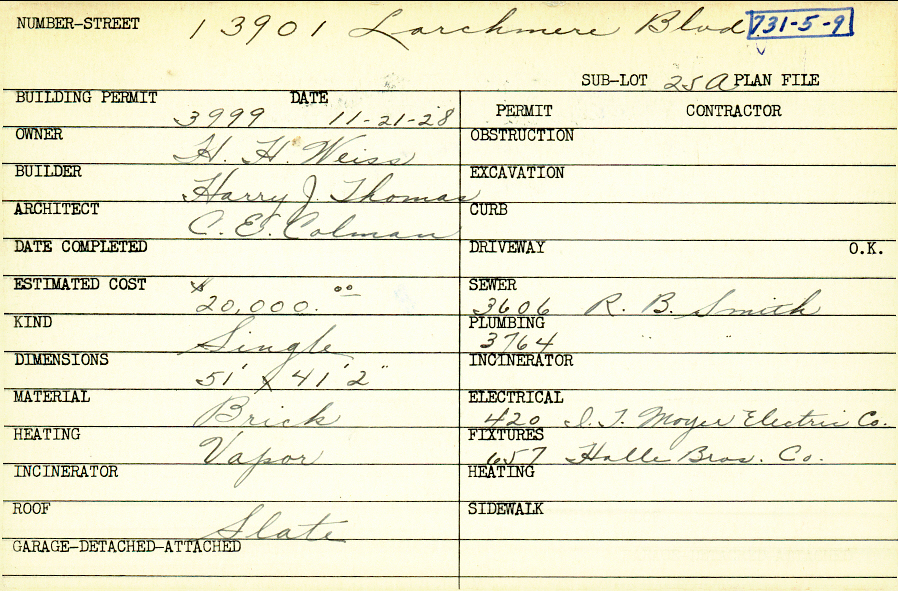 NUMBER-STREET 13901 Larchmere Blvd 731-5-9
SUB-LOT 25A PLAN FILE
BUILDING PERMIT DATE
3999 11-21-28
PERMIT CONTRACTOR
OWNER H. H. Weiss
OBSTRUCTION
BUILDER Harry J. Thomas
EXCAVATION
ARCHITECT C. E. Colman
CURB
DATE COMPLETED
DRIVEWAY O.K.
ESTIMATED COST $20,000.00
SEWER
3606 R. B. Smith
KIND Single
PLUMBING
3764 " "
DIMENSIONS 51' x 41' 2"
INCINERATOR
MATERIAL Brick
ELECTRICAL
420 I. T. Moyer Electric Co.
HEATING Vapor
FIXTURES
657 Halle Bros. Co.
INCINERATOR
HEATING
ROOF Slate
SIDEWALK
GARAGE-DETACHED-ATTACHED